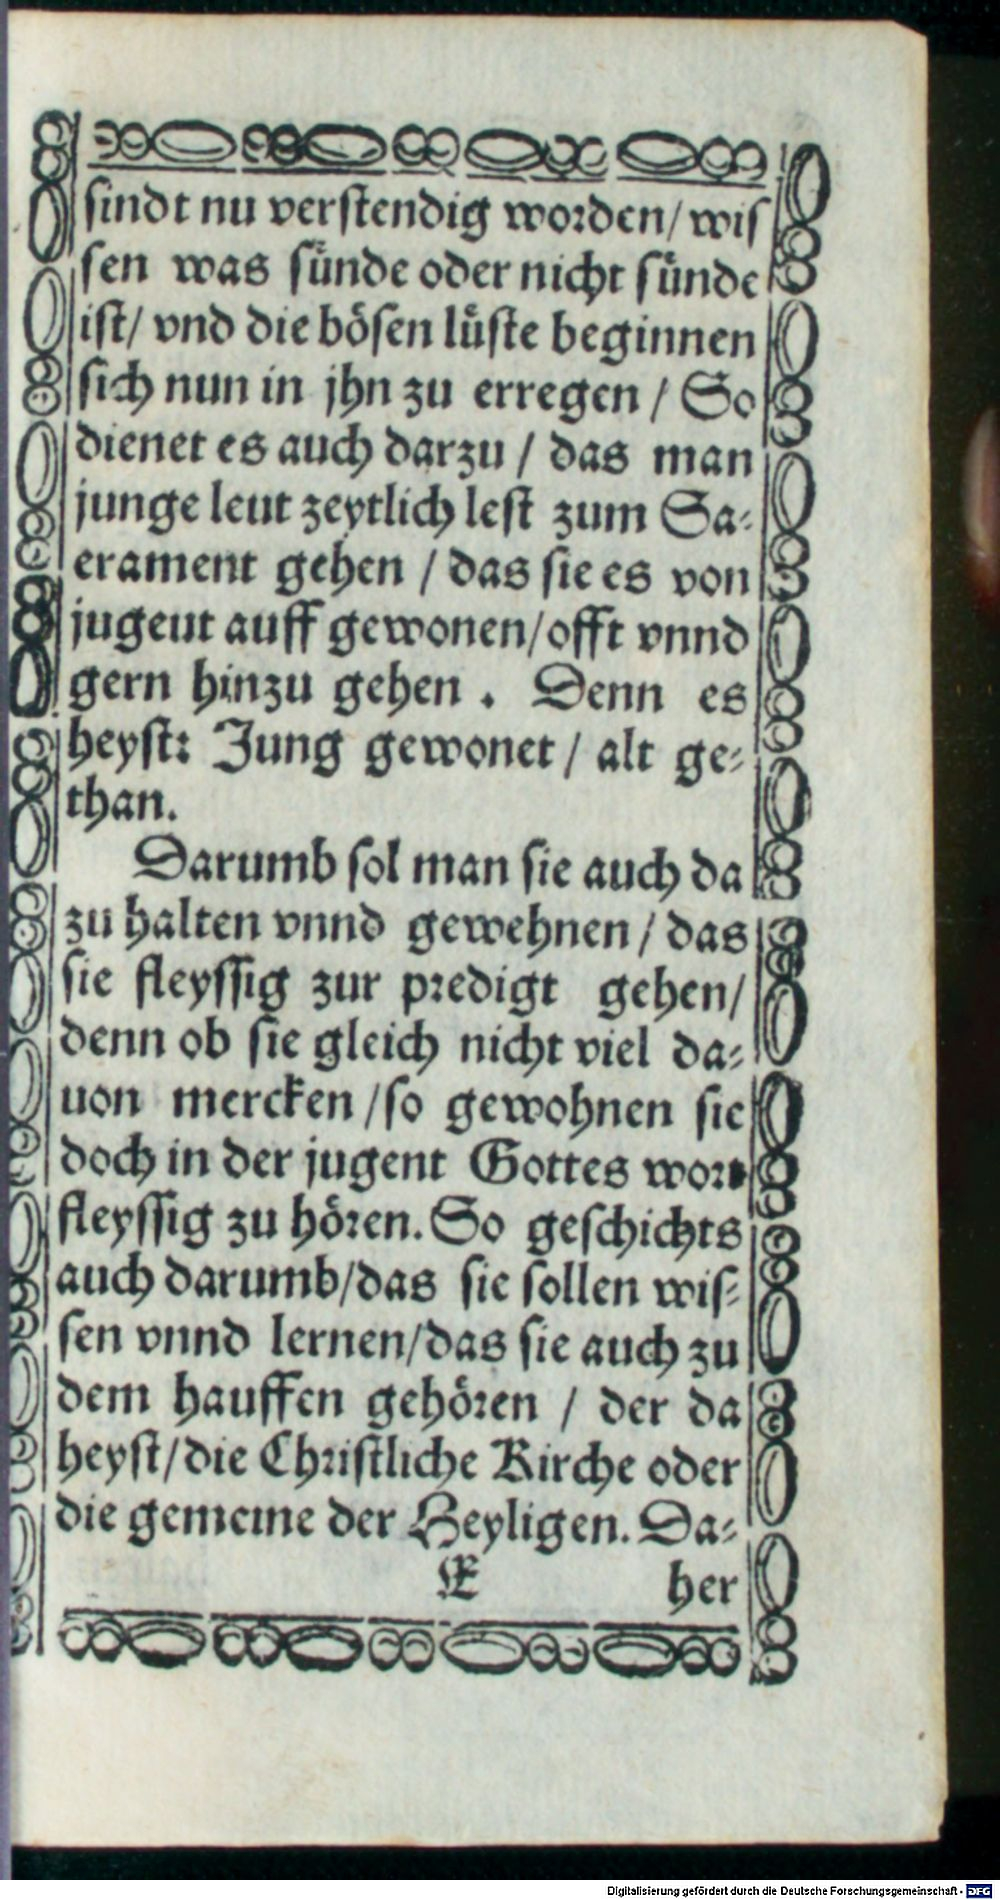 sindt nu verstendig worden/ wis
sen was sünde oder nicht sünde
ist/ vnd die bösen lüste beginnen
sich nun in jhn zu erregen / So
dienet es auch darzu / das man
junge leut zeytlich lest zum Sa-
erament gehen / das sie es von
jugent auff gewonen/offt vnnd
gern hinzu gehen . Denn es
heyst: Jung gewonet / alt ge-
than.
Darumb sol man sie auch da
zu halten vnnd gewehnen / das
sie fleyssig zur predigt gehen/
denn ob sie gleich nicht viel da-
uon mercken /so gewohnen sie
doch in der jugent Gottes wort
fleyssig zu hören. So geschichts
auch darumb/das sie sollen wis-
sen vnnd lernen/das sie auch zu
dem hauffen gehören / der da
heyst/die Christliche Kirche oder
die gemeine der Heyligen. Da-
E her
Digitalisierung gefördert durch die Deutsche Forschungsgemeinschaft - DFG